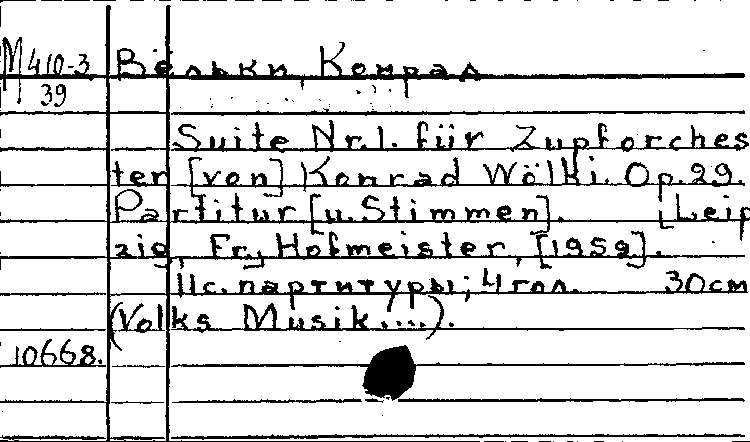 М 410-3 Вёльки, Конрад
39
Suite Nr.1. für Zupforches
ter [von] Konrad Wölki. Op.29.
Partitur [u.Stimmen]. [Leip
zig, Fr. Hofmeister, [1959].
11с. партитуры; 4 гол. 30см
(Volks Musik....).
10668.